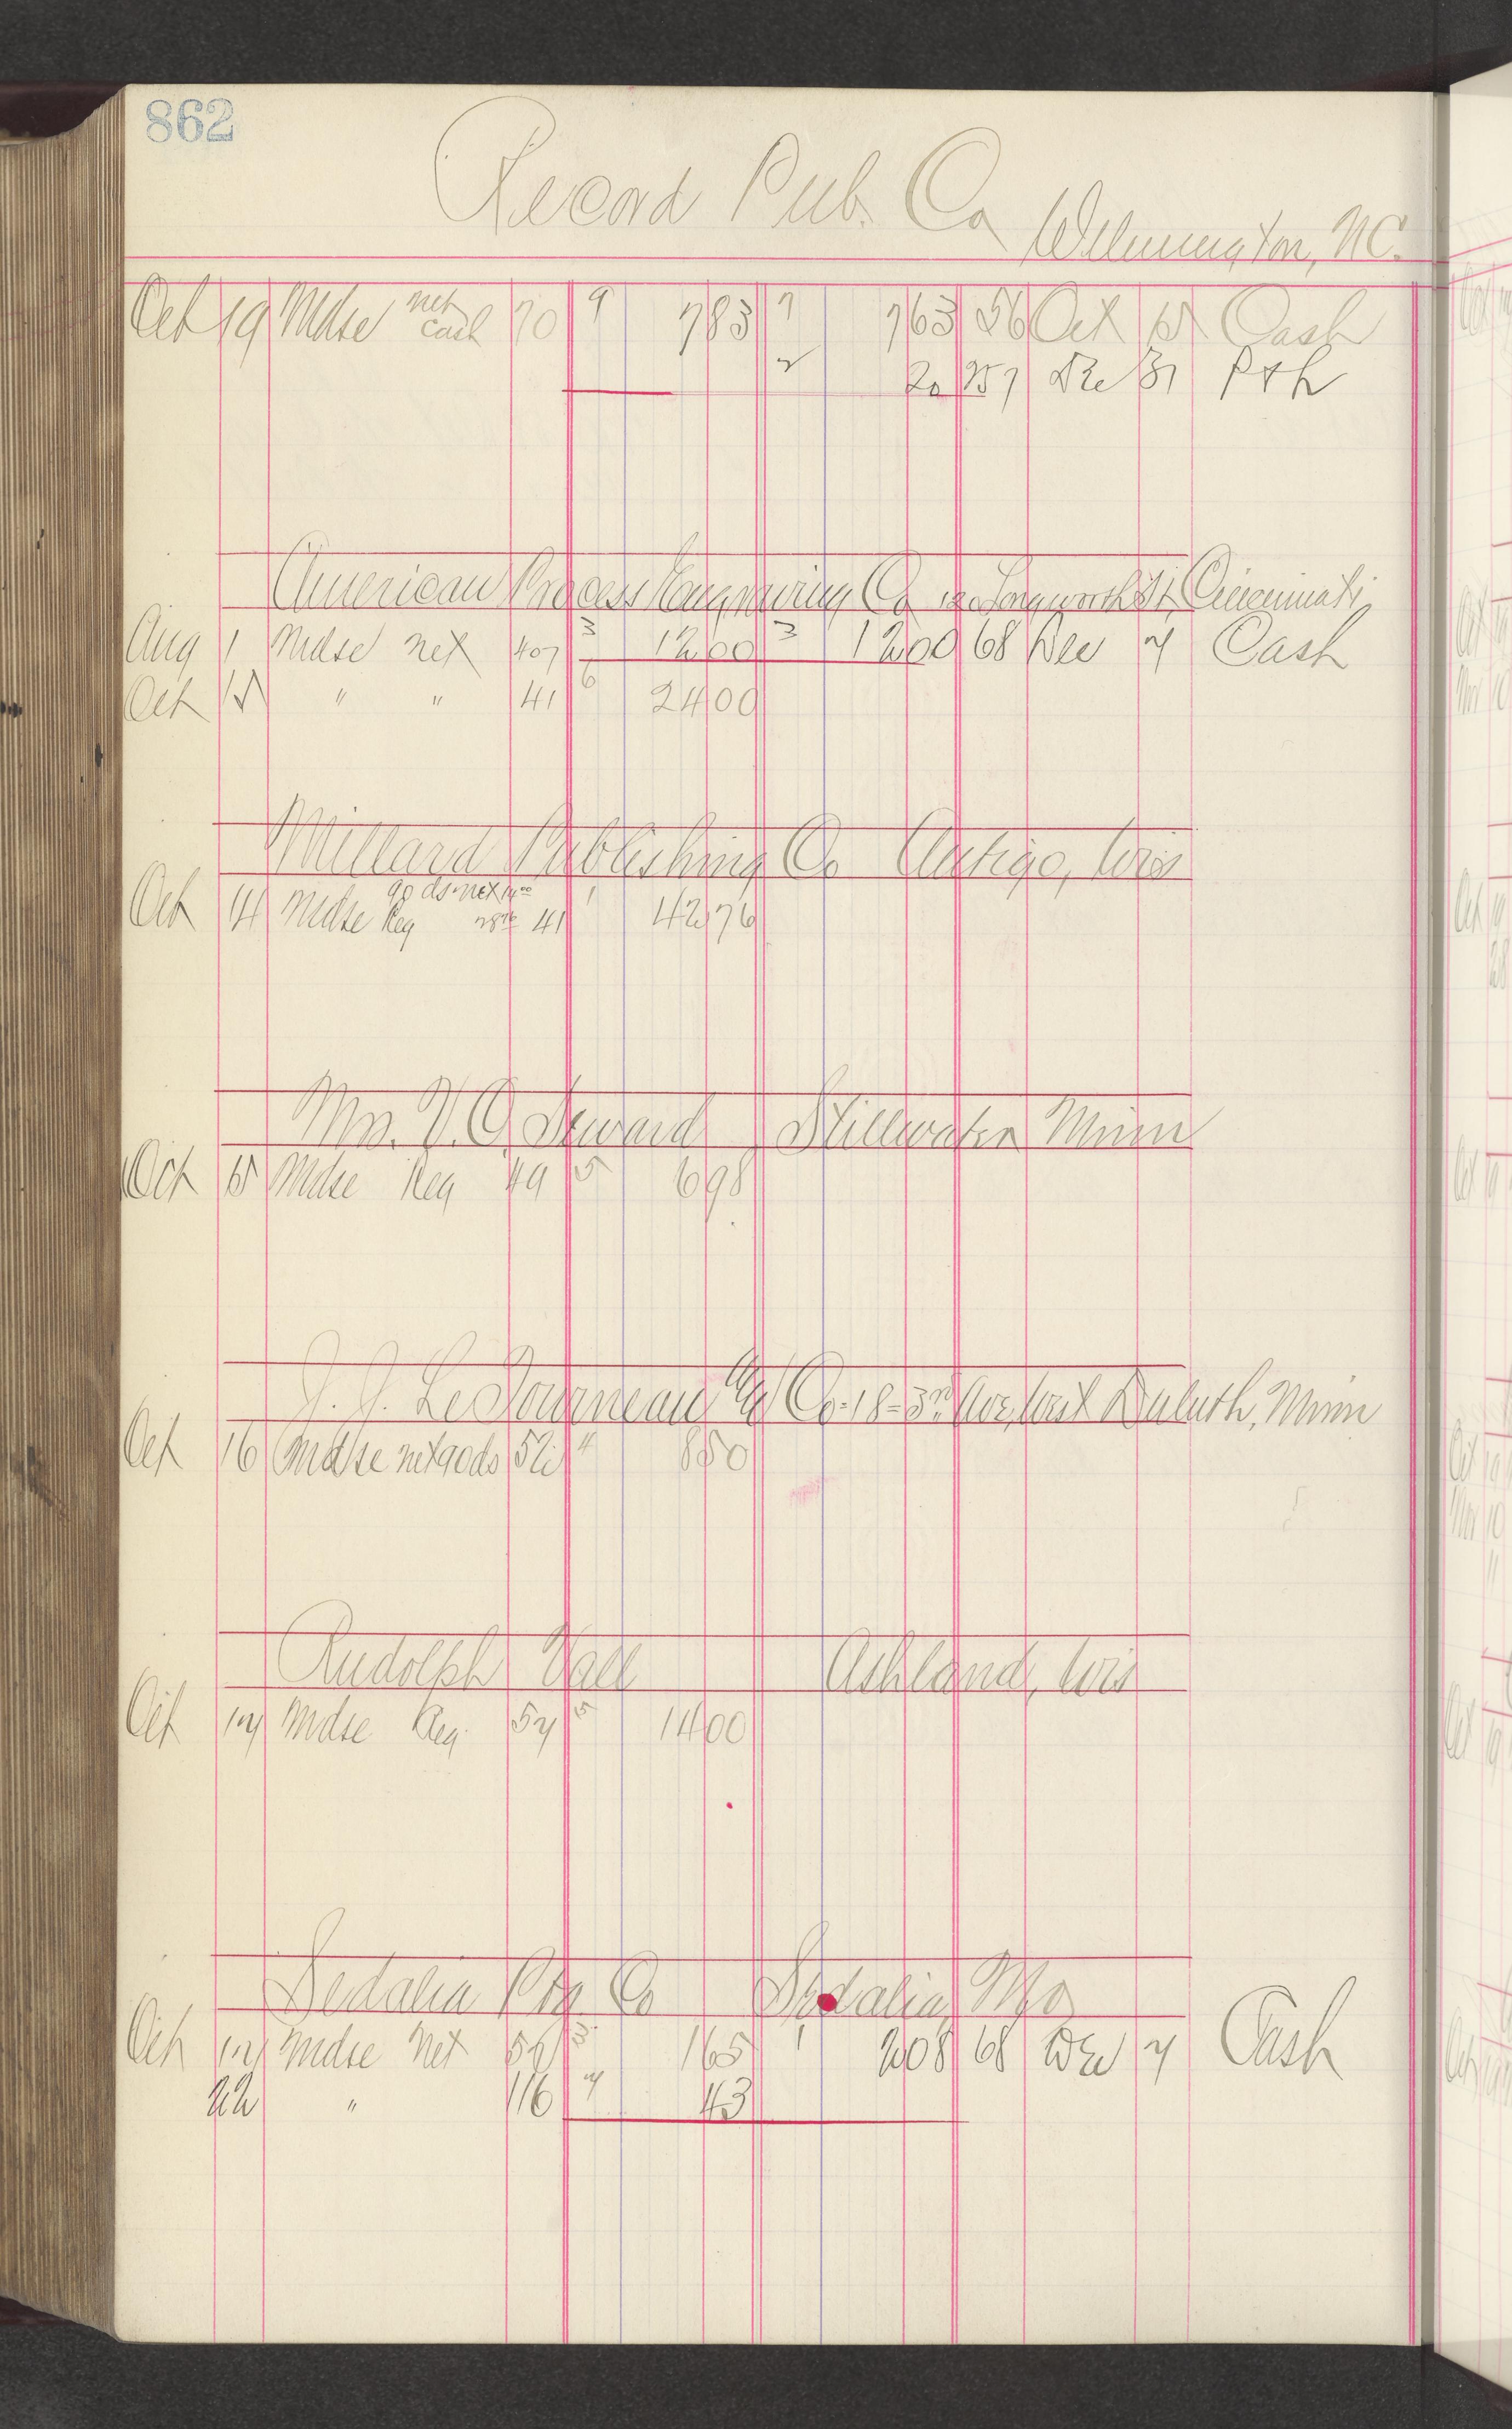 862
Record Pub. Co Wilmington, N.C.
Oct 19 Mdse net cash 70 9 7 83 7 7 63 56 Oct 15 Cash
2 20 257 Dec 31 P & L
American Process Engraving Co 12 Longworth St, Cincinnati
Aug 1 Mdse net 407 3 12 00 3 12 00 68 Dec 7 Cash
Oct 15 " " 41 6 24 00
Millard Publishing Co Antigo, Wis
90 ds net 14 00
Oct 14 Mdse Reg 28 76 41 1 42 76
Mrs. V. C. Seward Stillwater Minn
Oct 15 Mdse Reg 49 5 6 98
J. J. LeTourneau Co-18-3rd Ave, West Duluth, Minn
Oct 16 Mdse net 90 ds 52 4 8 50
Rudolph Vall Ashland, Wis
Oct 17 Mdse Reg. 57 5 14 00
Sedalia Ptg. Co Sedalia, Mo
Oct 17 Mdse Net 56 3 1 65 1 2 08 68 Dec 7 Cash
22 " 116 7 43